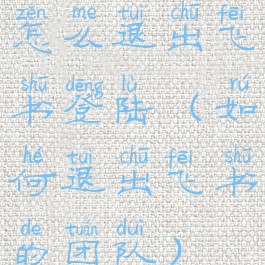 zěn me tuì chū fēi
怎么退出飞
shū dēng lù rú
书登陆（如
hé tuì chū fēi shū
何退出飞书
de tuán duì
的团队）